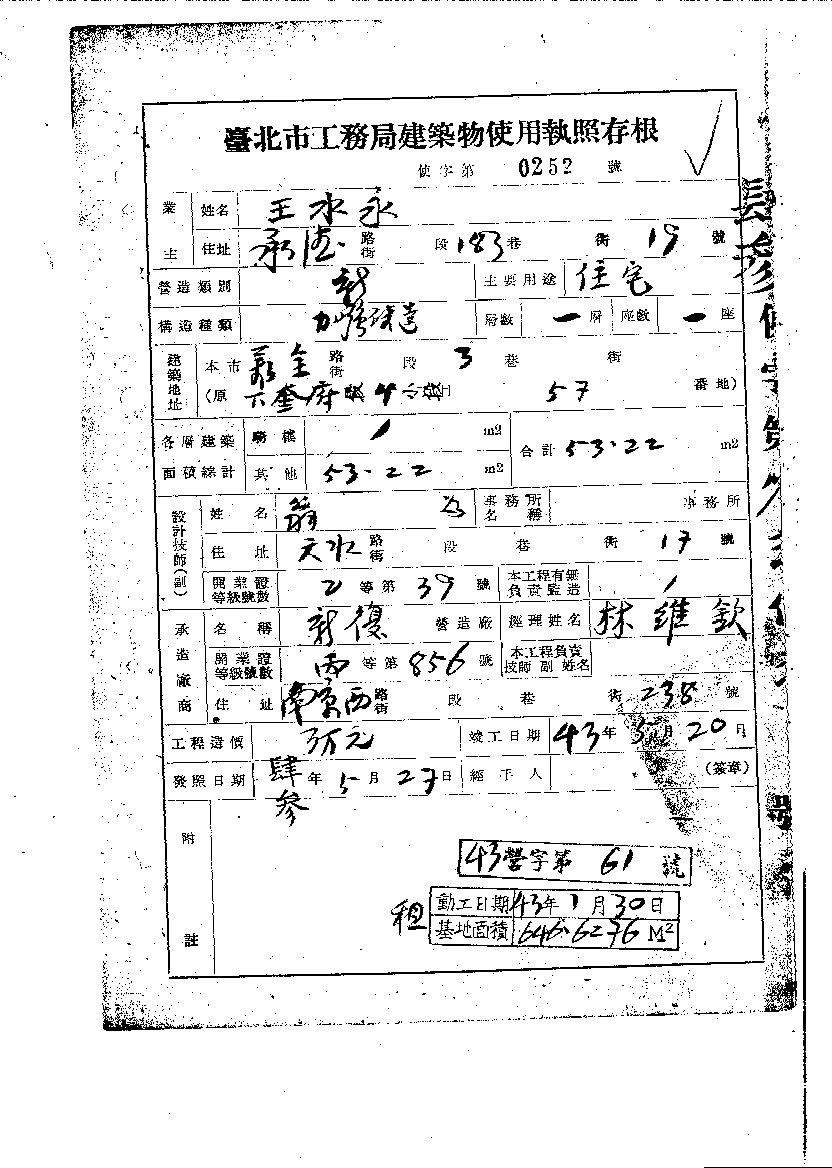 臺北市工務局建築物使用執照存根
使字第 0252 號
業主 姓名 王水永
住址 承德路街 段183巷 街 19 號
營造類別 新 主要用途 住宅
構造種類 加強磚造 層數 一層 座數 一座
建築地址 本市 路街 段 3 巷 街
(原 下奎府 57 番地)
各層建築面積綜計 騎樓 / m2 合計 53.22 m2
其他 53.22 m2
設計技師(副) 姓名 事務所名稱 事務所
住址 天水路街 段 巷 街 17 號
開業證等級號數 乙等第 39 號 本工程有無負責監造 /
承造廠商 名稱 新復 營造廠 經理姓名 林維欽
開業證等級號數 丙等第 856 號 本工程負責技師副姓名
住址 南京西路街 段 巷 街 238 號
工程造價 萬元 竣工日期 43年5月20日
發照日期 肆參年5月27日 經手人 (簽章)
附註
43營字第 61 號
租 動工日期 43年1月30日
基地面積 646.6276 M²